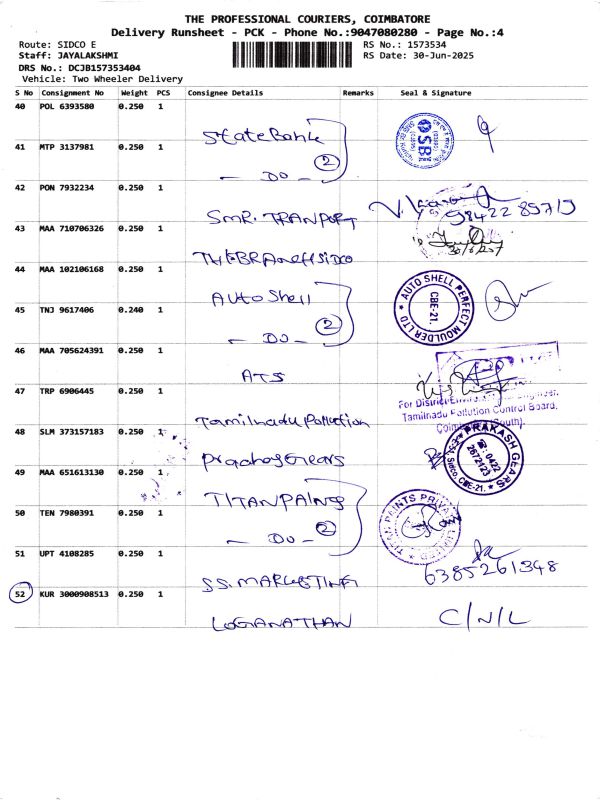 THE PROFESSIONAL COURIERS, COIMBATORE
Delivery Runsheet - PCK - Phone No.:9047080280 - Page No.:4
Route: SIDCO E
RS No.: 1573534
Staff: JAYALAKSHMI
RS Date: 30-Jun-2025
DRS No.: DCJB157353404
Vehicle: Two Wheeler Delivery
S No Consignment No Weight PCS Consignee Details Remarks Seal & Signature
40 POL 6393580 0.250 1
State Bank
41 MTP 3137981 0.250 1
2
- DO -
42 PON 7932234 0.250 1
SMR. TRANPORT
98422 89715
43 MAA 710706326 0.250 1
44 MAA 102106168 0.250 1
Auto Shell
AUTO SHELL PERFECT MOULDER LTD
CBE-21.
45 TNJ 9617406 0.240 1
2
- DO -
46 MAA 705624391 0.250 1
ATS
47 TRP 6906445 0.250 1
Tamilnadu Pollution
Tamilnadu Pollution Control Board,
48 SLM 373157183 0.250 1
PRAKASH GEARS
0422
2672123
Sidco, CBE-21.
49 MAA 651613130 0.250 1
TITAN PAINS
50 TEN 7980391 0.250 1
2
- DO -
TITAN PAINTS PRIVATE LIMITED
51 UPT 4108285 0.250 1
SS. MARKETING
6385261348
52 KUR 3000908513 0.250 1
LOGANATHAN
C/N/L